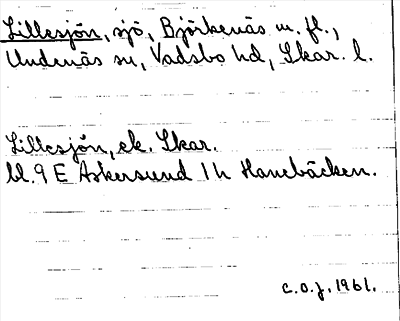 Lillesjön, sjö, Björkenäs m. fl.,
Undenäs sn, Vadsbo hd, Skar. l.
Lillesjön, ek. Skar.
bl. 9 E Askersund 1 h Hanebäcken.
c.o.j. 1961.